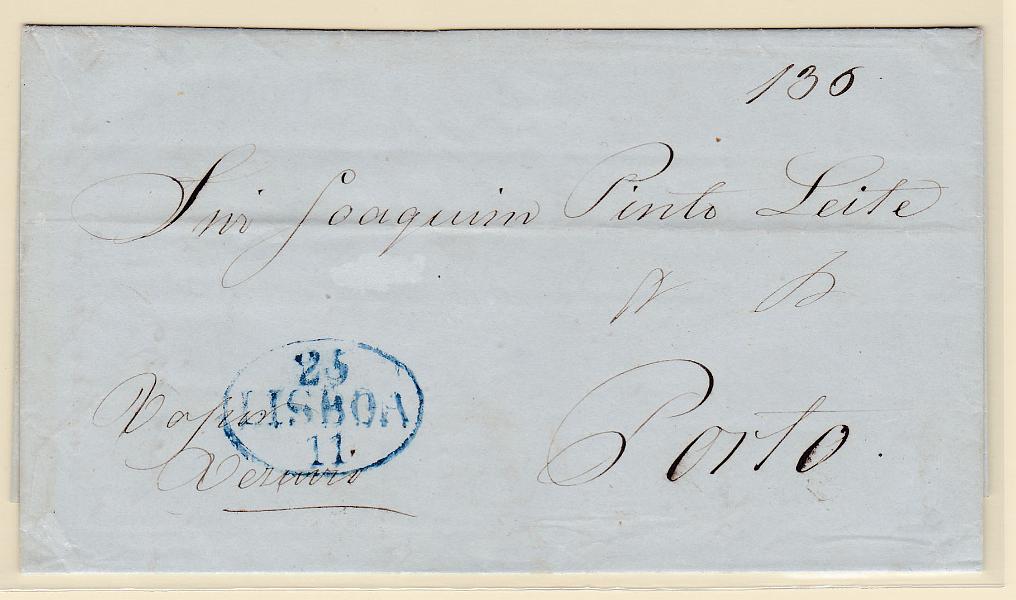 136
Snr Joaquim Pinto Leite
N B
25
LISBOA
11
Vapor
Porto